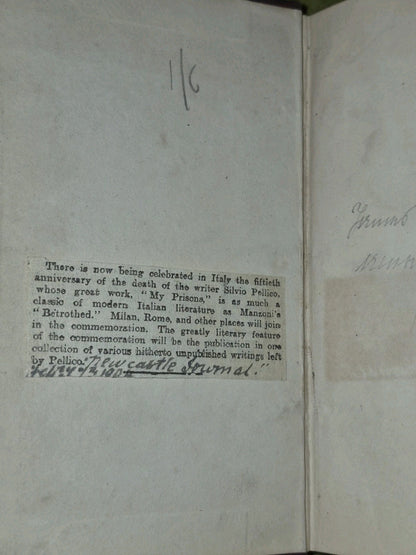 1/6
There is now being celebrated in Italy the fiftieth
anniversary of the death of the writer Silvio Pellico,
whose great work, "My Prisons," is as much a
classic of modern Italian literature as Manzoni's
"Betrothed." Milan, Rome, and other places will join
in the commemoration. The greatly literary feature
of the commemoration will be the publication in one
collection of various hitherto unpublished writings left
by Pellico. "Newcastle Journal."